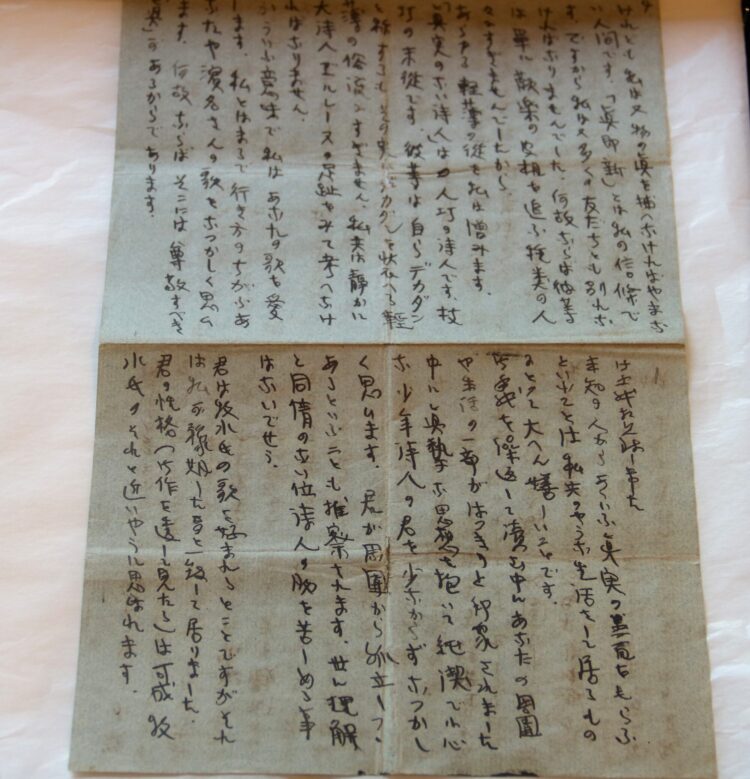 けれども私は又物の真を掴へなければやまな
い人間です。「真即新」とは私の信條で
す。ですから私は又多くの友たちとも別れな
ければなりませんでした。何故ならば彼等
は単に歓楽の空想を追ふ種類の人
々にすぎませんでしたから。
あらゆる軽薄の徒を私は憎みます。
「真実のない詩人」は人巧の詩人です、技
巧の末徒です。彼等は自らデカダン
と称するも、その実デカダンを状へる軽
薄の俗流にすぎません、私共は静かに
大詩人エルレーヌの足跡をみて考へなけ
ればなりません。
かういふ意味で私はあなたの歌を愛
します。私とはまるで行き方のちがふあ
なたや濱名さんの歌をなつかしく思ひ
ます。何故ならばそこには尊敬すべき
「真実」があるからであります。
1
未知の人からあゝいふ真実の書面をもらふ
といふことは私共のやうな生活をして居るもの
にとつて大へん嬉しいことです。
お手紙を繰返して読む中にあなたの周囲
や生活の一部がはつきりと印象されました
中にも真摯な思想を抱いて純潔で小心
な少年詩人の君を少なからずなつかし
く思ひます。君が周囲から孤立して
あるといふことも推察されます。世に理解
と同情のない位詩人の胸を苦しめる事
はないでせう。
君は牧水氏の歌を好まれるとのことですがそれ
は私の豫想した事と一致して居りました。
君の性格(作を透して見たる)は可成牧
水氏のそれと近いやうに思はれます。